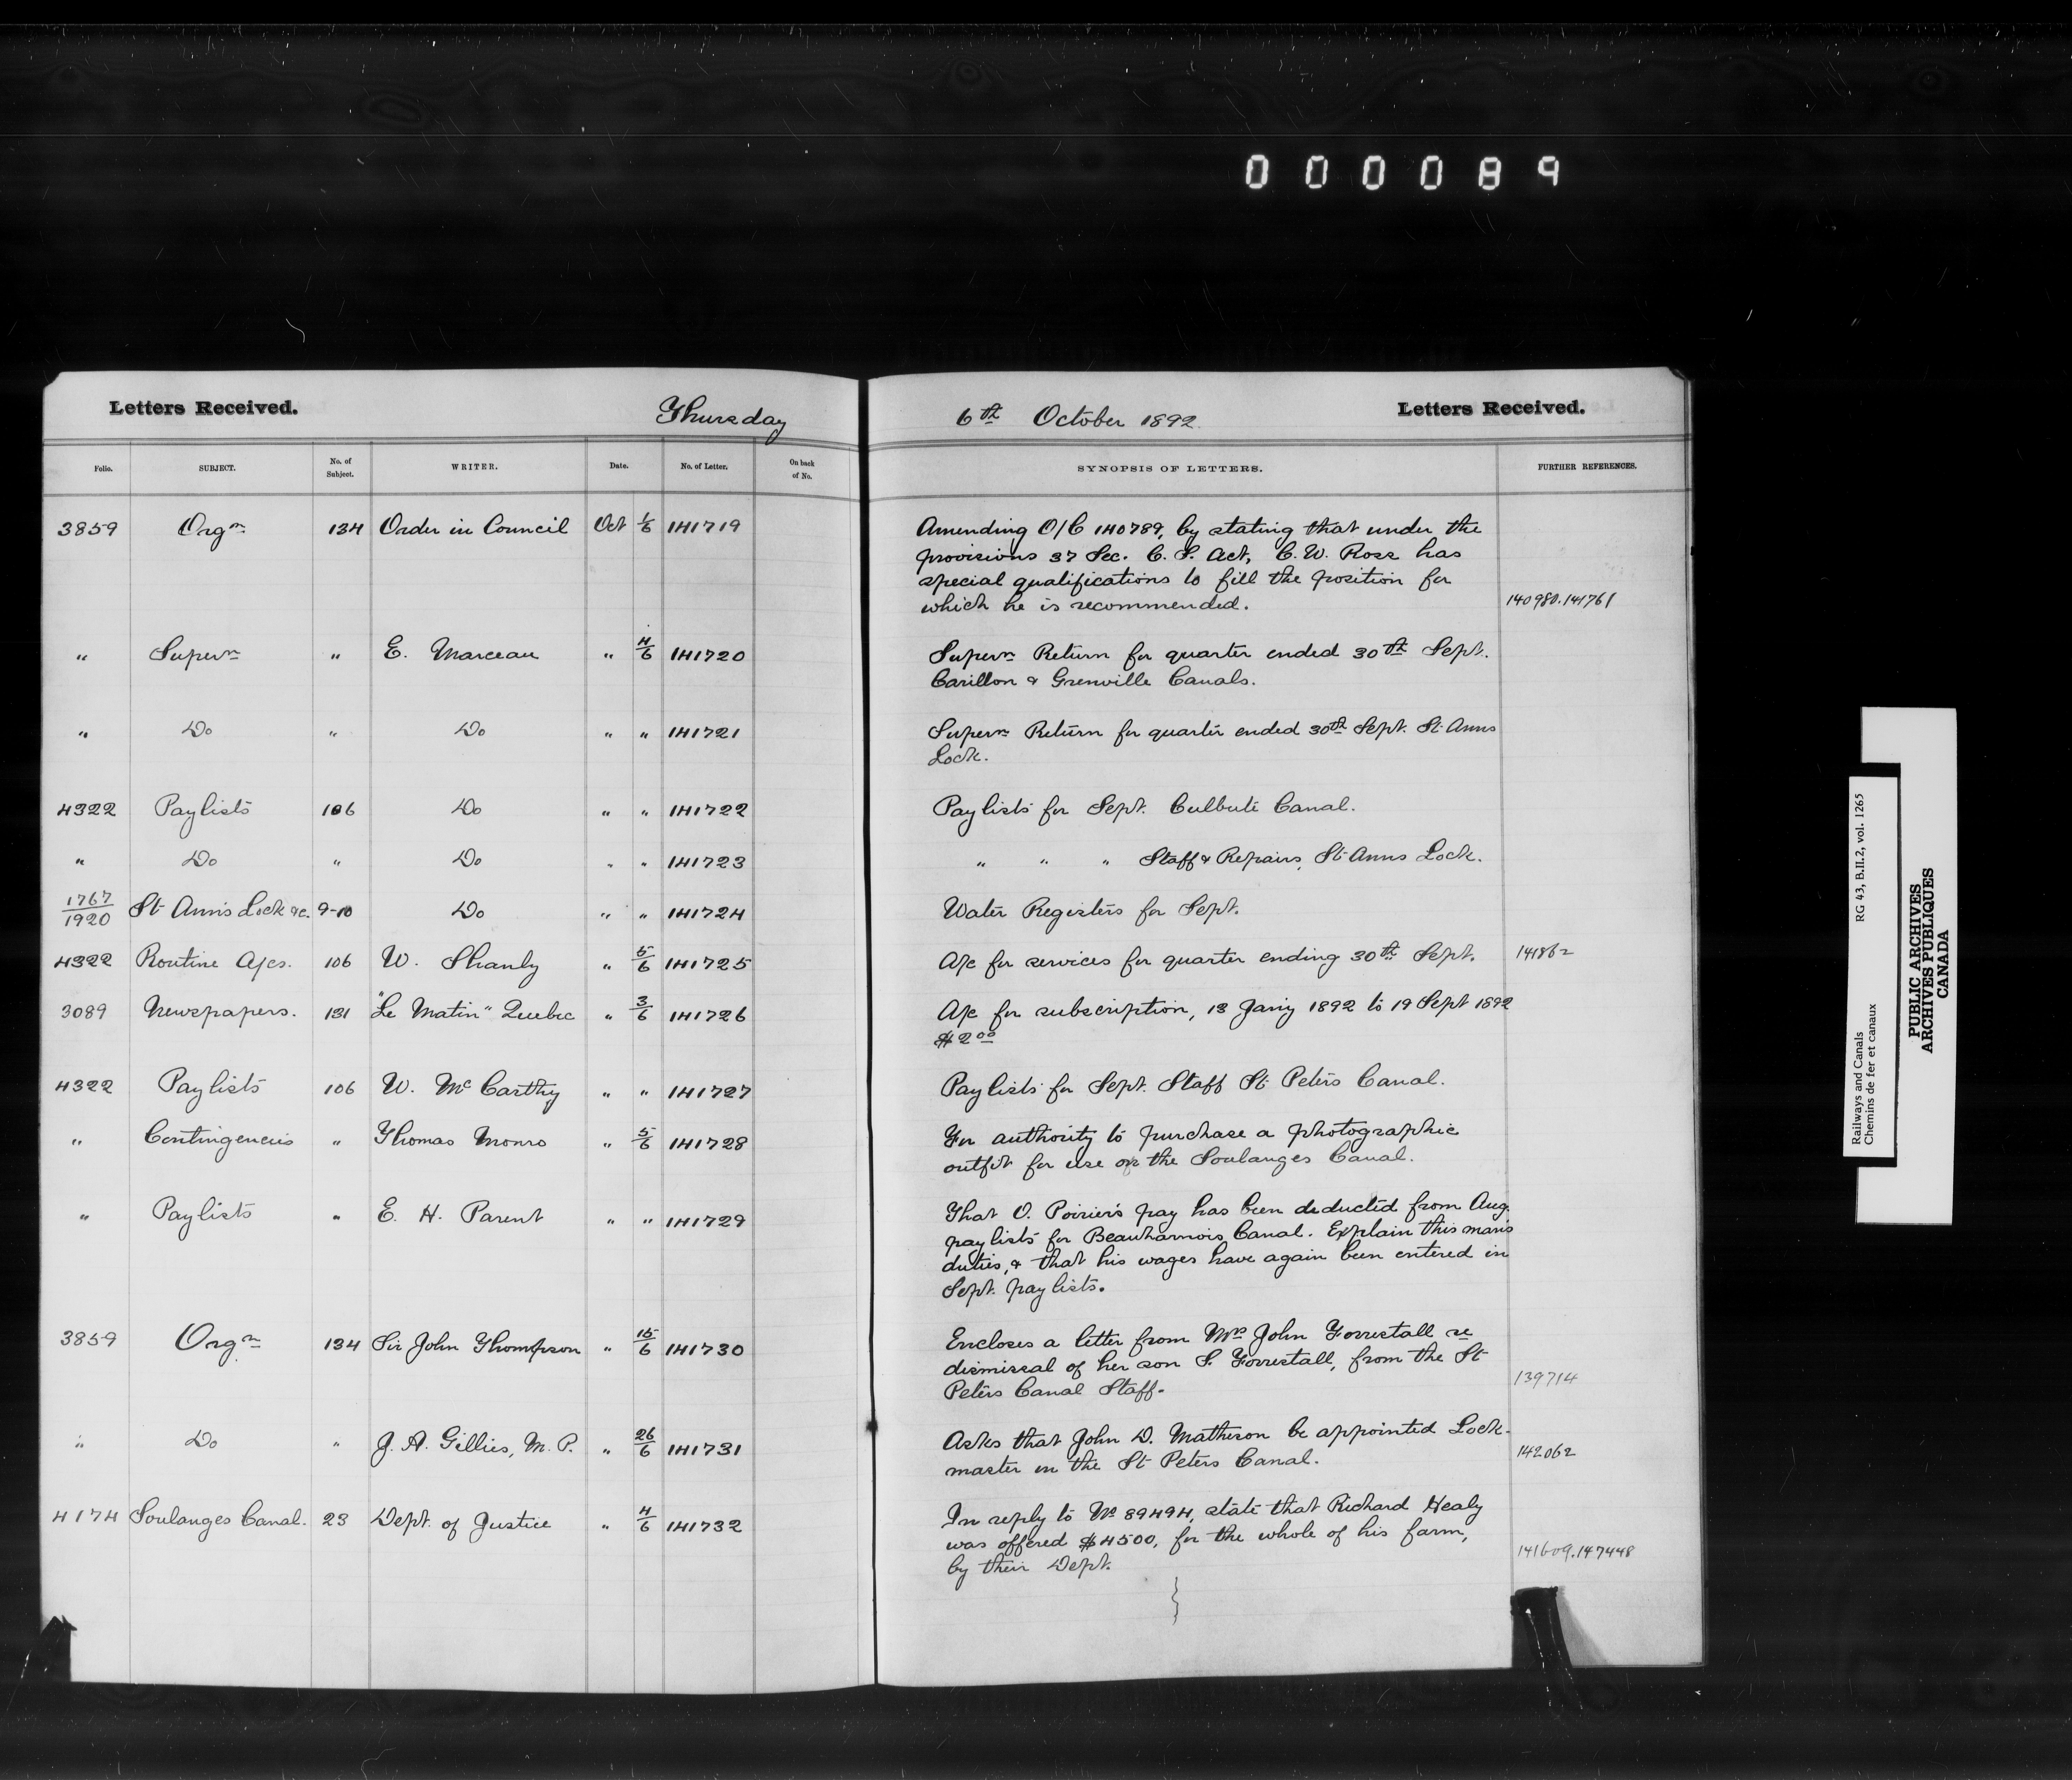 000089
Letters Received. Thursday
Folio. SUBJECT. No. of Subject. WRITER. Date. No. of Letter. On back of No.
3859 Orgn 134 Order in Council Oct 1/6 141719
" Supern " E. Marceau " 4/6 141720
" Do " Do " " 141721
4322 Paylists 106 Do " " 141722
" Do " Do " " 141723
1767/1920 St Ann's Lock &c. 9-10 Do " " 141724
4322 Routine A/cs. 106 W. Shanly " 5/6 141725
3089 Newspapers. 131 "Le Matin" Quebec " 3/6 141726
4322 Paylists 106 W. McCarthy " " 141727
" Contingencies " Thomas Monro " 5/6 141728
" Paylists " E. H. Parent " " 141729
3859 Orgn 134 Sir John Thompson " 15/6 141730
" Do " J. A. Gillies, M. P. " 26/6 141731
4174 Soulanges Canal. 23 Dept. of Justice " 4/6 141732
6th October 1892 Letters Received.
SYNOPSIS OF LETTERS. FURTHER REFERENCES.
Amending O/C 140789, by stating that under the
provisions 37 Sec. C. S. Act, C. W. Ross has
special qualifications to fill the position for
which he is recommended. 140980.141761
Supern Return for quarter ended 30th Sept.
Carillon & Grenville Canals.
Supern Return for quarter ended 30th Sept. St Anns
Lock.
Paylists for Sept. Culbute Canal.
" " " Staff & Repairs, St Anns Lock.
Water Registers for Sept.
A/c for services for quarter ending 30th Sept. 141862
A/c for subscription, 13 Jany 1892 to 19 Sept 1892
$2.00
Paylists for Sept. Staff St Peters Canal.
For authority to purchase a photographic
outfit for use on the Soulanges Canal.
That O. Poirier's pay has been deducted from Aug.
paylists for Beauharnois Canal. Explain this man's
duties, & that his wages have again been entered in
Sept. paylists.
Encloses a letter from Mrs John Forrestall re
dismissal of her son S. Forrestall, from the St
Peters Canal Staff. 139714
Asks that John D. Matheson be appointed Lock-
master on the St Peters Canal. 142062
In reply to No 89494, state that Richard Healy
was offered $4500, for the whole of his farm,
by their Dept. 141609.147448
Railways and Canals RG 43, B.II.2, vol. 1265
Chemins de fer et canaux
PUBLIC ARCHIVES
ARCHIVES PUBLIQUES
CANADA